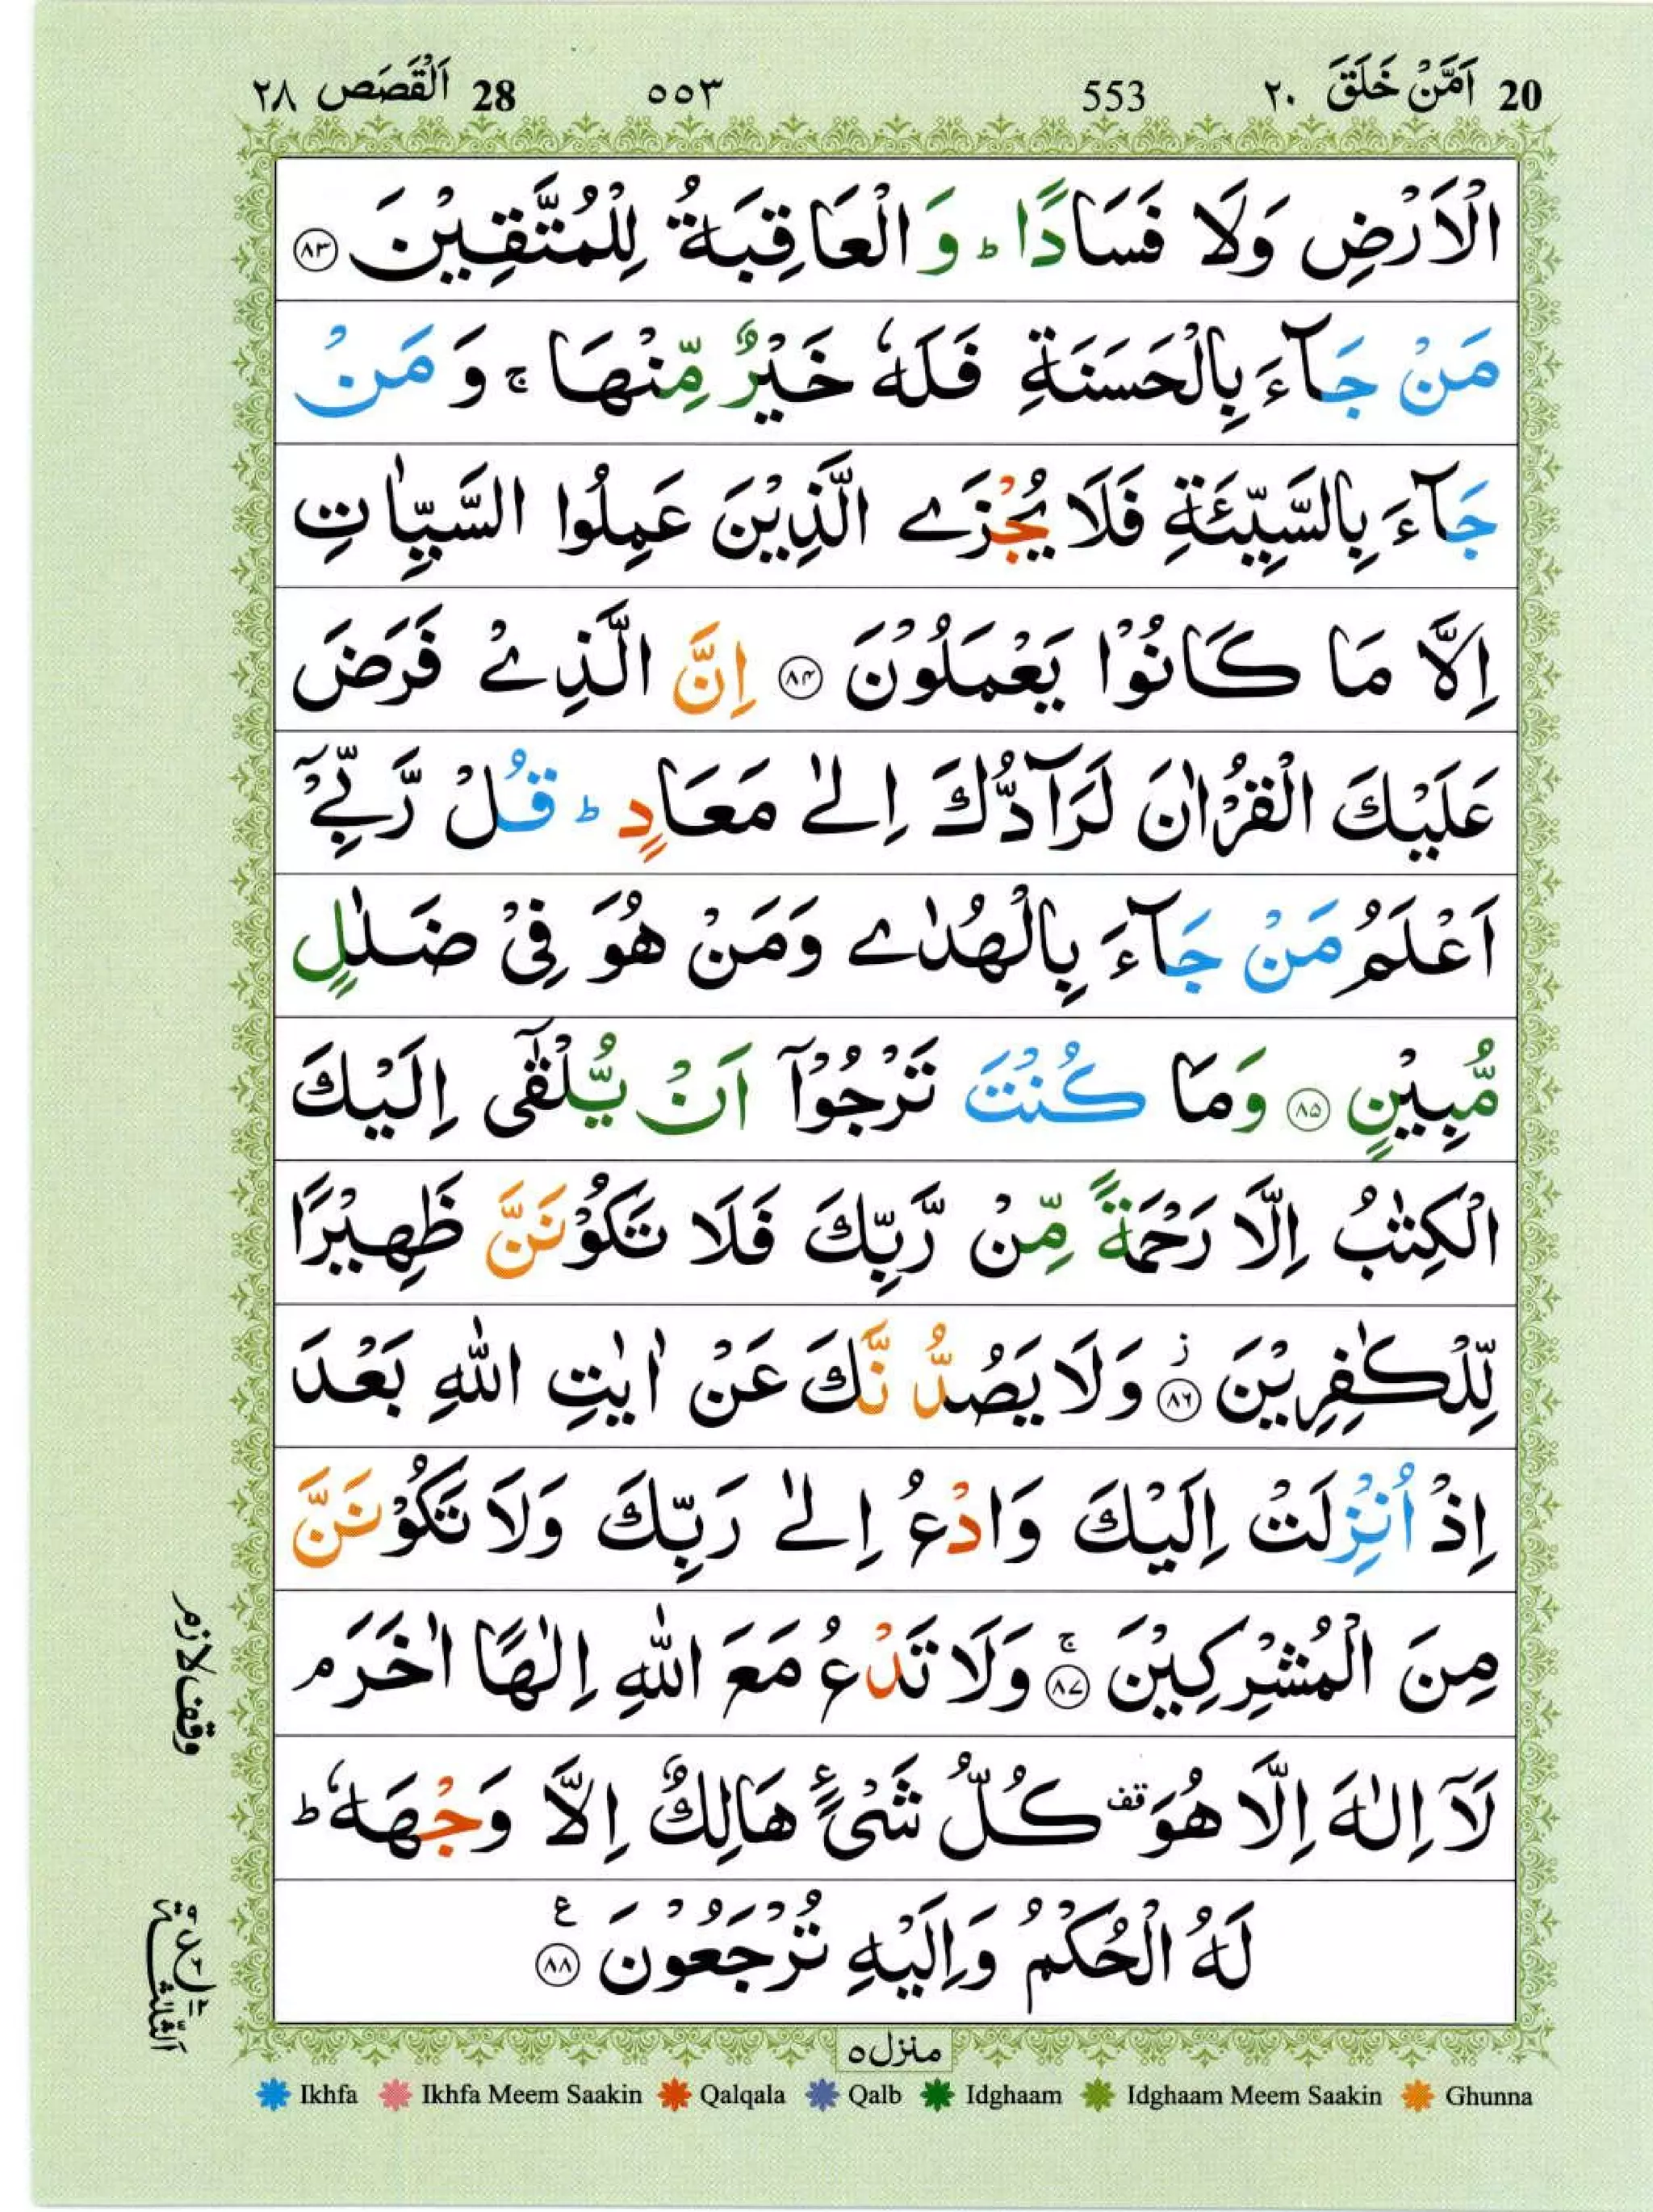 20 اَمَّنْ خَلَقَ ٢٠ 553 ٥٥٣ 28 اَلْقَصَص ٢٨
الْاَرْضِ وَلَا فَسَادًا ؕ وَالْعَاقِبَةُ لِلْمُتَّقِيْنَ ۝٨٣
مَنْ جَآءَ بِالْحَسَنَةِ فَلَهٗ خَيْرٌ مِّنْهَا ۚ وَمَنْ
جَآءَ بِالسَّيِّئَةِ فَلَا يُجْزَے الَّذِيْنَ عَمِلُوا السَّيِّاٰتِ
اِلَّا مَا كَانُوْا يَعْمَلُوْنَ ۝٨٤ اِنَّ الَّذِےْ فَرَضَ
عَلَيْكَ الْقُرْاٰنَ لَرَآدُّكَ اِلٰے مَعَادٍ ؕ قُلْ رَّبِّےْۤ
اَعْلَمُ مَنْ جَآءَ بِالْهُدٰے وَمَنْ هُوَ فِیْ ضَلٰلٍ
مُّبِيْنٍ ۝٨٥ وَمَا كُنْتَ تَرْجُوْۤا اَنْ يُّلْقٰۤى اِلَيْكَ
الْكِتٰبُ اِلَّا رَحْمَةً مِّنْ رَّبِّكَ فَلَا تَكُوْنَنَّ ظَهِيْرًا
لِّلْكٰفِرِيْنَ ۝٨٦ۙ وَلَا يَصُدُّنَّكَ عَنْ اٰيٰتِ اللّٰهِ بَعْدَ
اِذْ اُنْزِلَتْ اِلَيْكَ وَادْعُ اِلٰے رَبِّكَ وَلَا تَكُوْنَنَّ
مِنَ الْمُشْرِكِيْنَ ۝٨٧ۚ وَلَا تَدْعُ مَعَ اللّٰهِ اِلٰهًا اٰخَرَ ۘ
لَاۤ اِلٰهَ اِلَّا هُوَ قف كُلُّ شَیْءٍ هَالِكٌ اِلَّا وَجْهَهٗ ؕ
لَهُ الْحُكْمُ وَاِلَيْهِ تُرْجَعُوْنَ ۝٨٨ ع
وقف لازم
اَلثُّلٰثَة
منزل ٥
Ikhfa Ikhfa Meem Saakin Qalqala Qalb Idghaam Idghaam Meem Saakin Ghunna